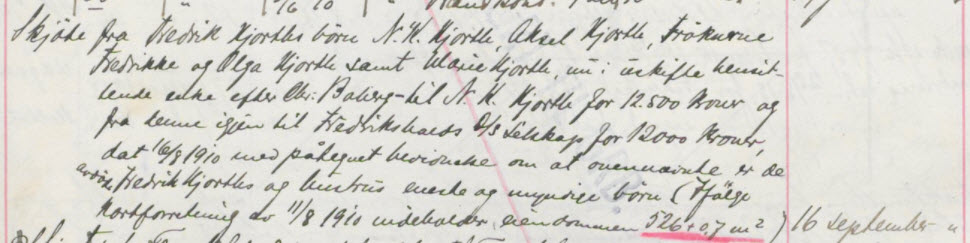 16 10
Skjöde fra Fredrik Hjorths börn N. H. Hjorth, Aksel Hjorth, Frökurne
Fredrikke og Olga Hjorth samt Marie Hjorth, nu i uskifte hensit-
tende enke efter Chr. Baberg til N. H. Hjorth for 12.500 Kroner og
fra denne igjen til Fredrikshalds A/S for 12000 Kroner,
dat 16/8 1910 med påtegnet bevidnelse om at ovennævnte er de
avdöde Fredrik Hjorths og hustrus eneste og myndige börn (Ifölge
Kartforretning av 11/8 1910 indeholder eiendommen 526 + 0.7 m²) 16 september "